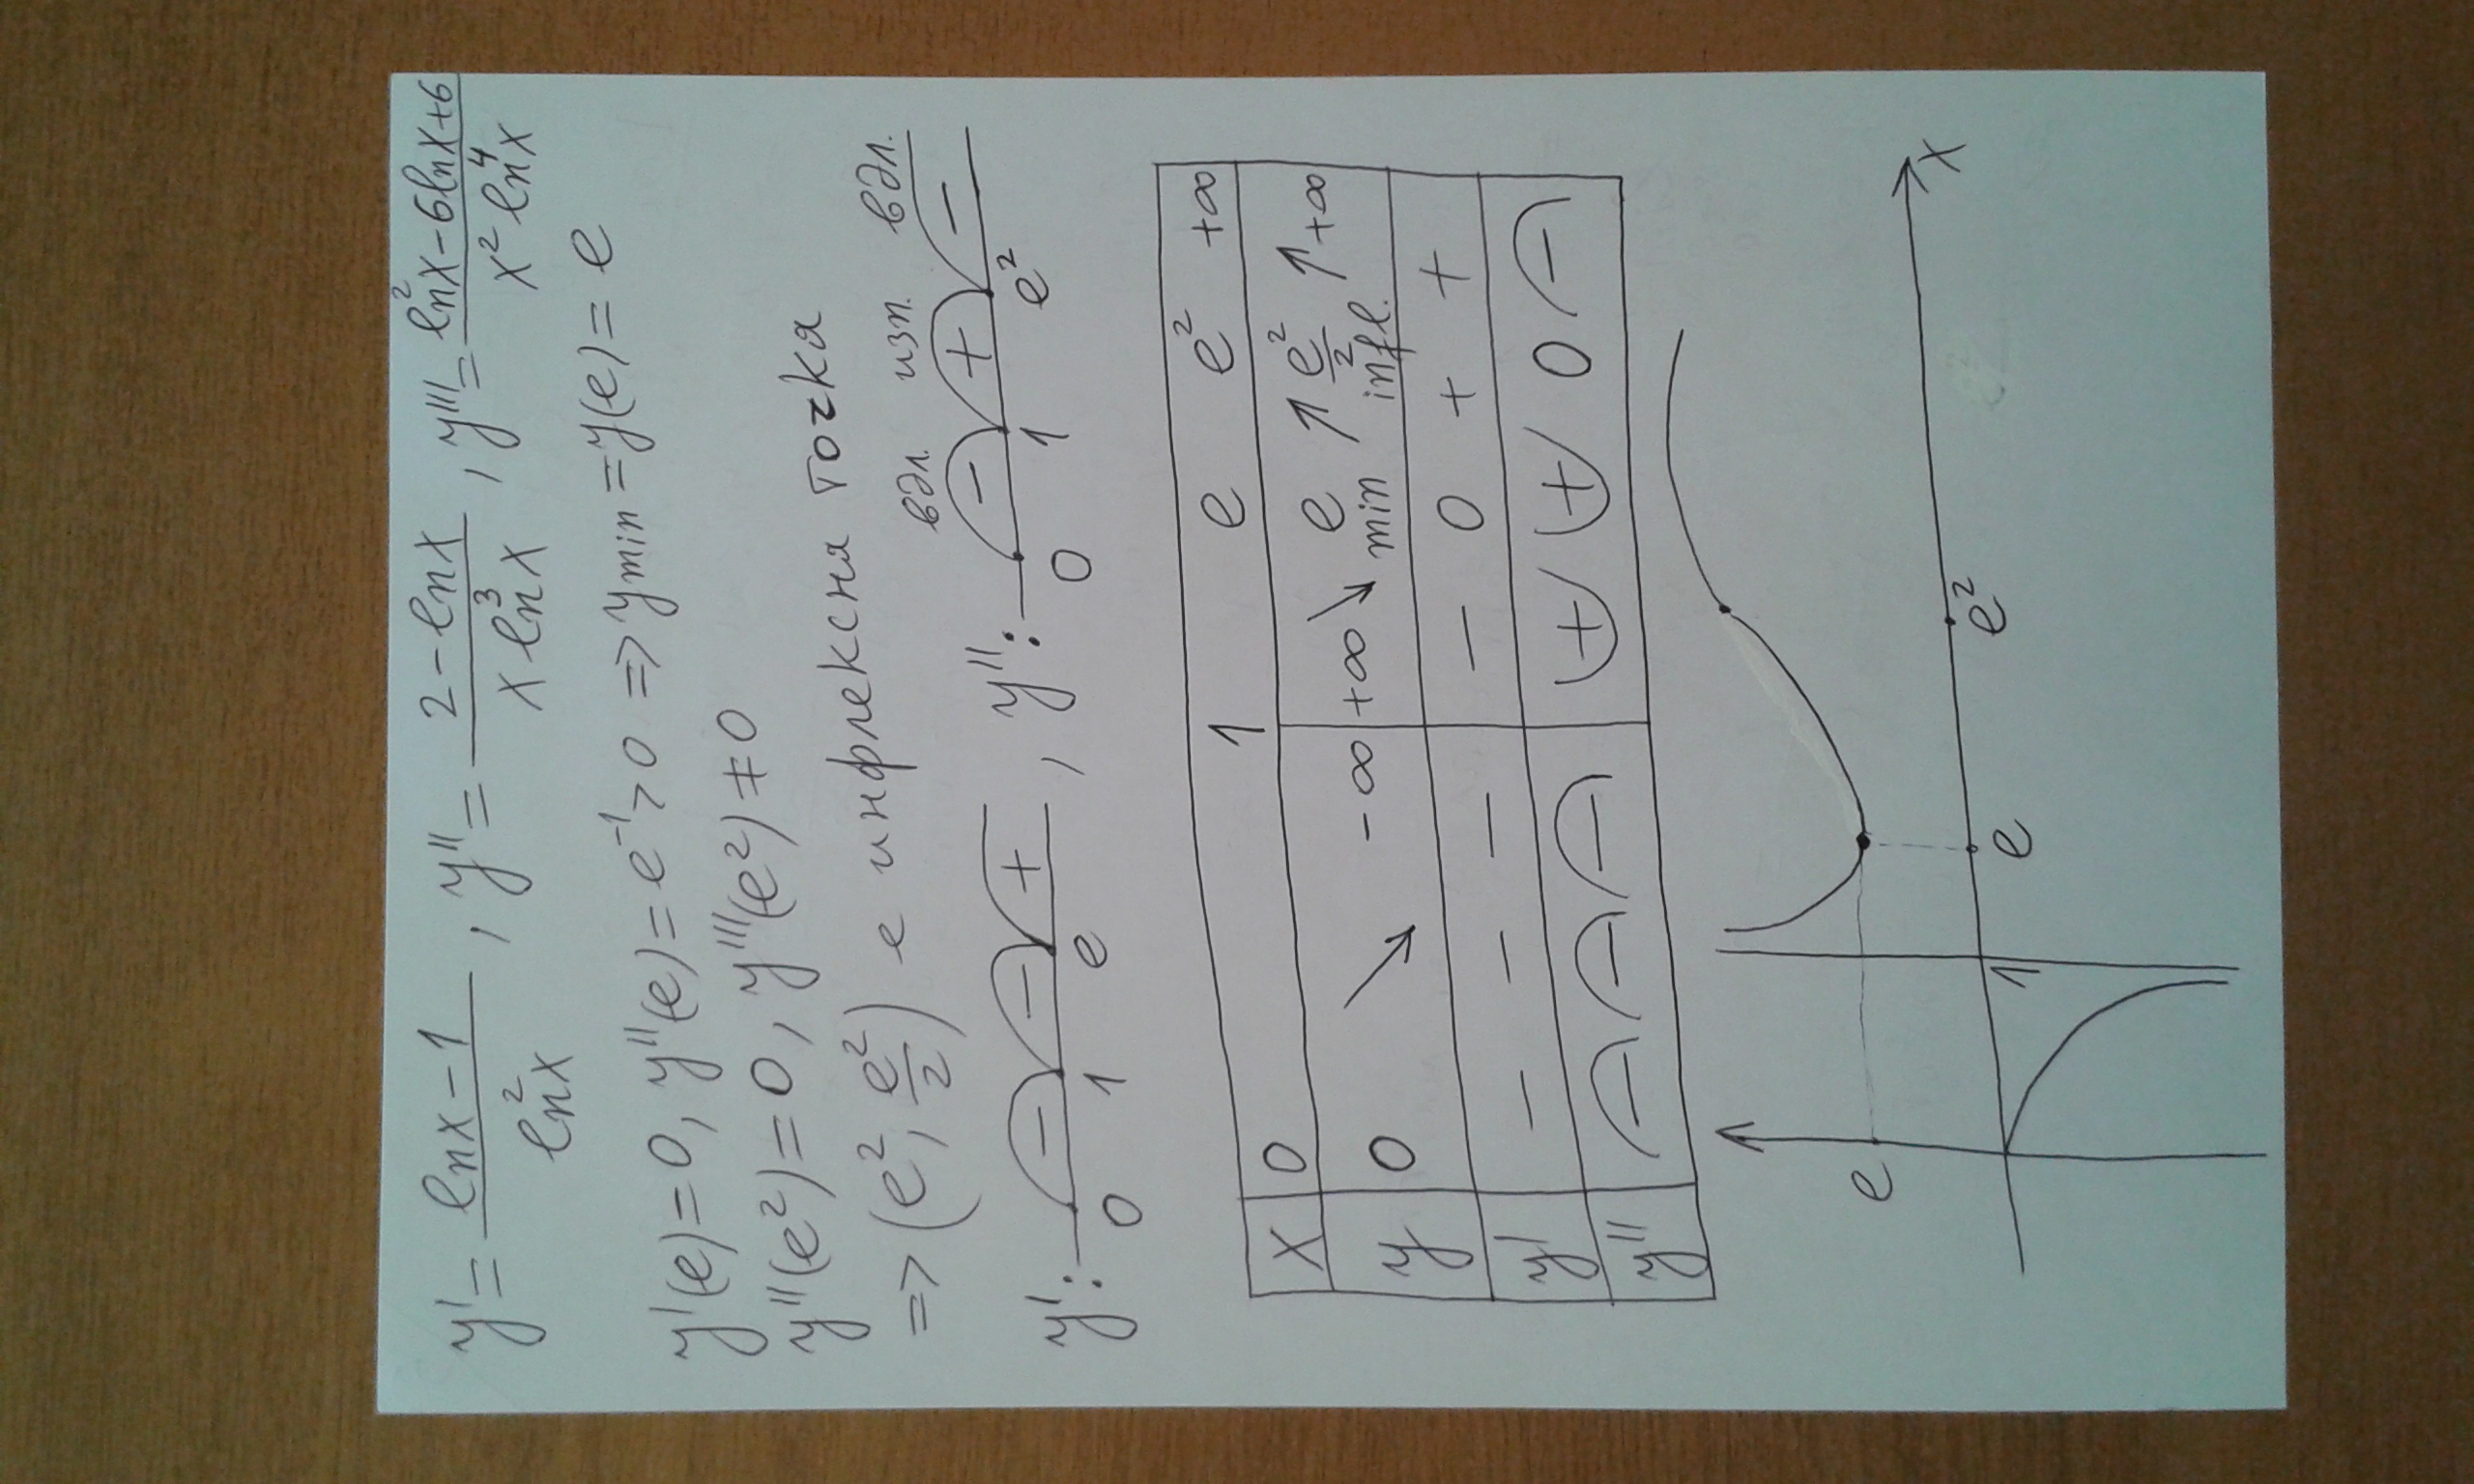 y' = (ln x − 1)/(ln²x), y'' = (2 − ln x)/(x ln³x), y''' = (ln²x − 6ln x + 6)/(x² ln⁴x)
y'(e) = 0, y''(e) = e⁻¹ > 0 => y min = y(e) = e
y''(e²) = 0, y'''(e²) ≠ 0
=> (e², e²/2) е инфлексна точка
вдл. изп. вдл.
y': − − + , y'': − + −
0 1 e 0 1 e²
x 0 1 e e² +∞
y 0 ↘ −∞ +∞ ↘ e min ↑ e²/2 infl. ↑ +∞
y' − − − − 0 + +
y'' − − − + + 0 −
e
x
1 e e²